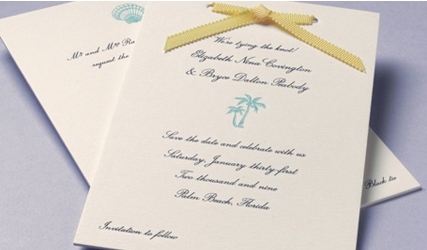 We're tying the knot!
Elizabeth Nina Covington
& Bryce Dalton Peabody
Save the date and celebrate with us
Saturday, January thirty-first
Two thousand and nine
Palm Beach, Florida
Invitation to follow
Mr and Mrs
request the
Black tie